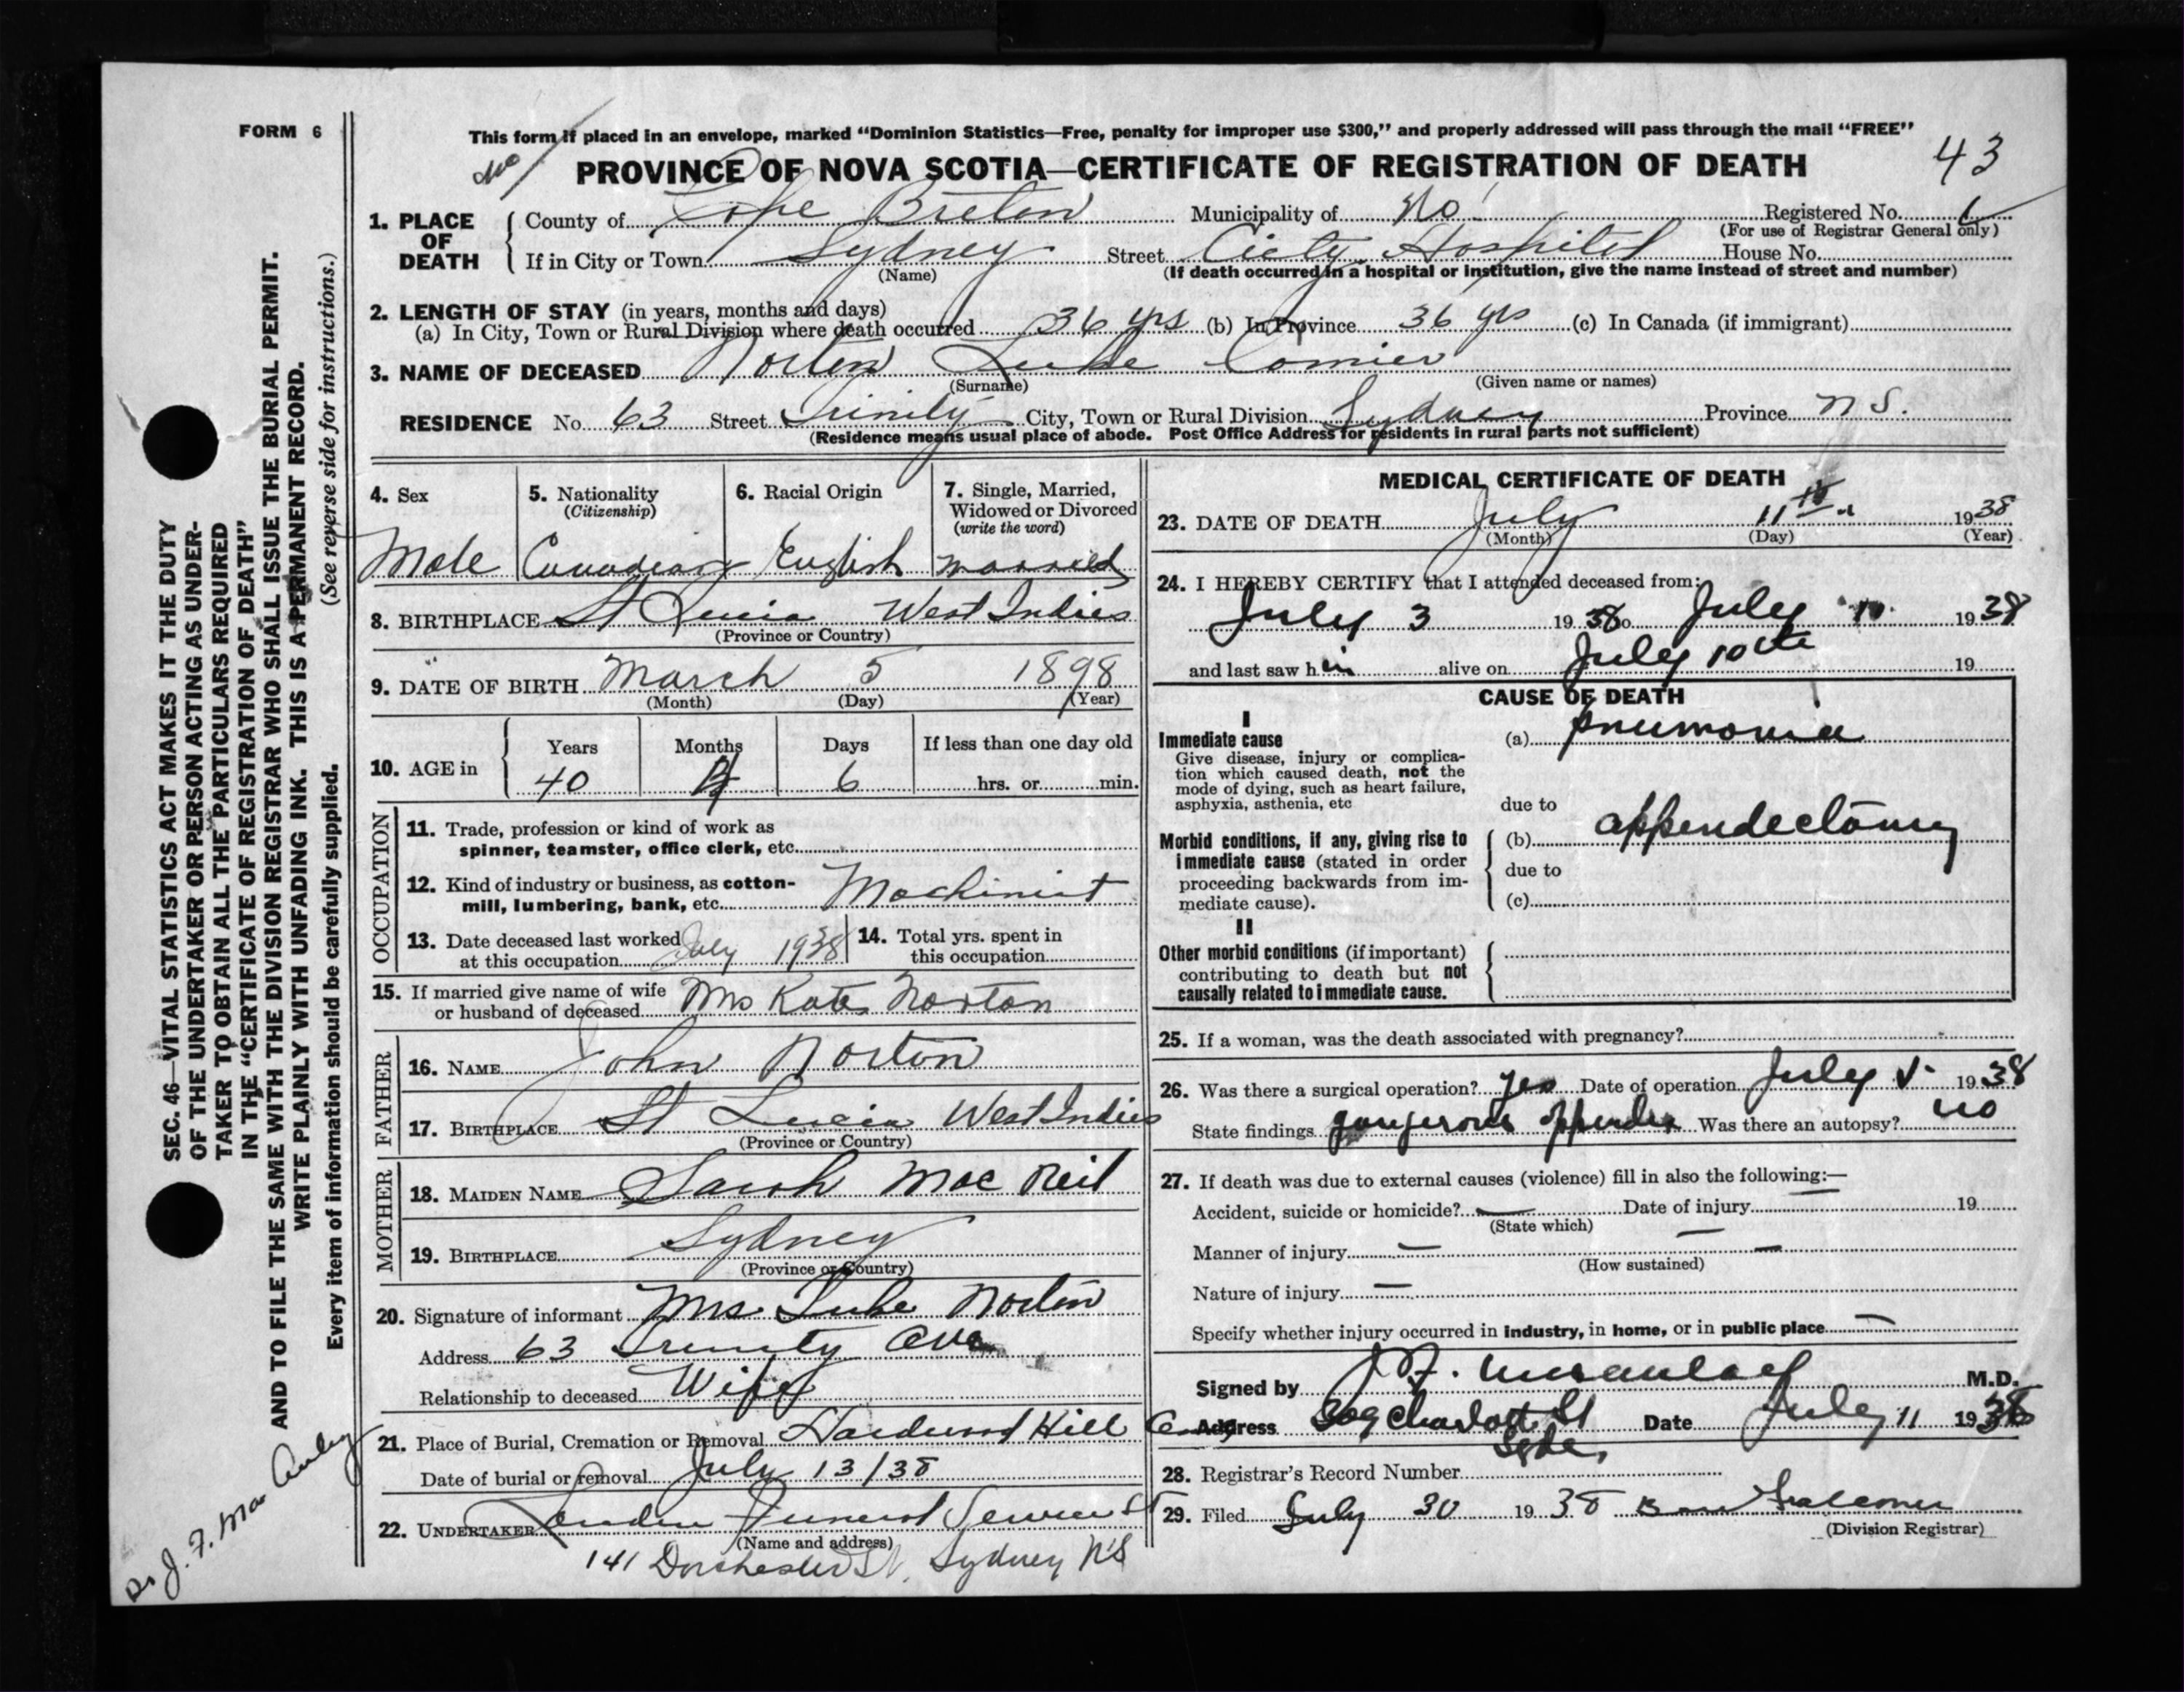 FORM 6
This form if placed in an envelope, marked “Dominion Statistics—Free, penalty for improper use $300,” and properly addressed will pass through the mail “FREE”
43
PROVINCE OF NOVA SCOTIA—CERTIFICATE OF REGISTRATION OF DEATH
1. PLACE OF DEATH
County of Cape Breton Municipality of No. Registered No.
(For use of Registrar General only)
If in City or Town Sydney Street City Hospital House No.
(Name) (If death occurred in a hospital or institution, give the name instead of street and number)
2. LENGTH OF STAY (in years, months and days)
(a) In City, Town or Rural Division where death occurred 36 yrs (b) In Province 36 yrs (c) In Canada (if immigrant)
3. NAME OF DECEASED Norton Luke
(Surname) (Given name or names)
RESIDENCE No. 63 Street Trinity City, Town or Rural Division Sydney Province N S.
(Residence means usual place of abode. Post Office Address for residents in rural parts not sufficient)
4. Sex
Male
5. Nationality
(Citizenship)
Canadian
6. Racial Origin
English
7. Single, Married,
Widowed or Divorced
(write the word)
married
8. BIRTHPLACE St Lucia West Indies
(Province or Country)
9. DATE OF BIRTH March 5 1898
(Month) (Day) (Year)
10. AGE in
Years Months Days If less than one day old
40 4 6 hrs. or min.
OCCUPATION
11. Trade, profession or kind of work as
spinner, teamster, office clerk, etc.
12. Kind of industry or business, as cotton-
mill, lumbering, bank, etc. Machinist
13. Date deceased last worked
at this occupation July 1938
14. Total yrs. spent in
this occupation
15. If married give name of wife
or husband of deceased Mrs Kate Norton
FATHER
16. NAME John Norton
17. BIRTHPLACE St Lucia West Indies
(Province or Country)
MOTHER
18. MAIDEN NAME Sarah Mac Neil
19. BIRTHPLACE Sydney
(Province or Country)
20. Signature of informant Mrs. Luke Norton
Address 63 Trinity Ave
Relationship to deceased Wife
21. Place of Burial, Cremation or Removal Hardwood Hill
Date of burial or removal July 13/38
22. UNDERTAKER Funeral Service
(Name and address)
141 Dorchester St, Sydney N S
MEDICAL CERTIFICATE OF DEATH
23. DATE OF DEATH July 11th 1938
(Month) (Day) (Year)
24. I HEREBY CERTIFY that I attended deceased from:
July 3 1938 to July 10 1938
and last saw him alive on July 10th 19
CAUSE OF DEATH
I
Immediate cause
Give disease, injury or complica-
tion which caused death, not the
mode of dying, such as heart failure,
asphyxia, asthenia, etc
(a) pnumonia
due to
Morbid conditions, if any, giving rise to
immediate cause (stated in order
proceeding backwards from im-
mediate cause).
(b) appendectomy
due to
(c)
II
Other morbid conditions (if important)
contributing to death but not
causally related to immediate cause.
25. If a woman, was the death associated with pregnancy?
26. Was there a surgical operation? yes Date of operation July 1938
State findings appendix Was there an autopsy? no
27. If death was due to external causes (violence) fill in also the following:—
Accident, suicide or homicide? Date of injury 19
(State which)
Manner of injury
(How sustained)
Nature of injury
Specify whether injury occurred in industry, in home, or in public place
Signed by M.D.
Address 309 Charlotte St Date July 11 1938
28. Registrar’s Record Number
29. Filed July 30 1938
(Division Registrar)
SEC. 46—VITAL STATISTICS ACT MAKES IT THE DUTY
OF THE UNDERTAKER OR PERSON ACTING AS UNDER-
TAKER TO OBTAIN ALL THE PARTICULARS REQUIRED
IN THE “CERTIFICATE OF REGISTRATION OF DEATH”
AND TO FILE THE SAME WITH THE DIVISION REGISTRAR WHO SHALL ISSUE THE BURIAL PERMIT.
WRITE PLAINLY WITH UNFADING INK. THIS IS A PERMANENT RECORD.
Every item of information should be carefully supplied. (See reverse side for instructions.)
Dr J. F. Mac Auley